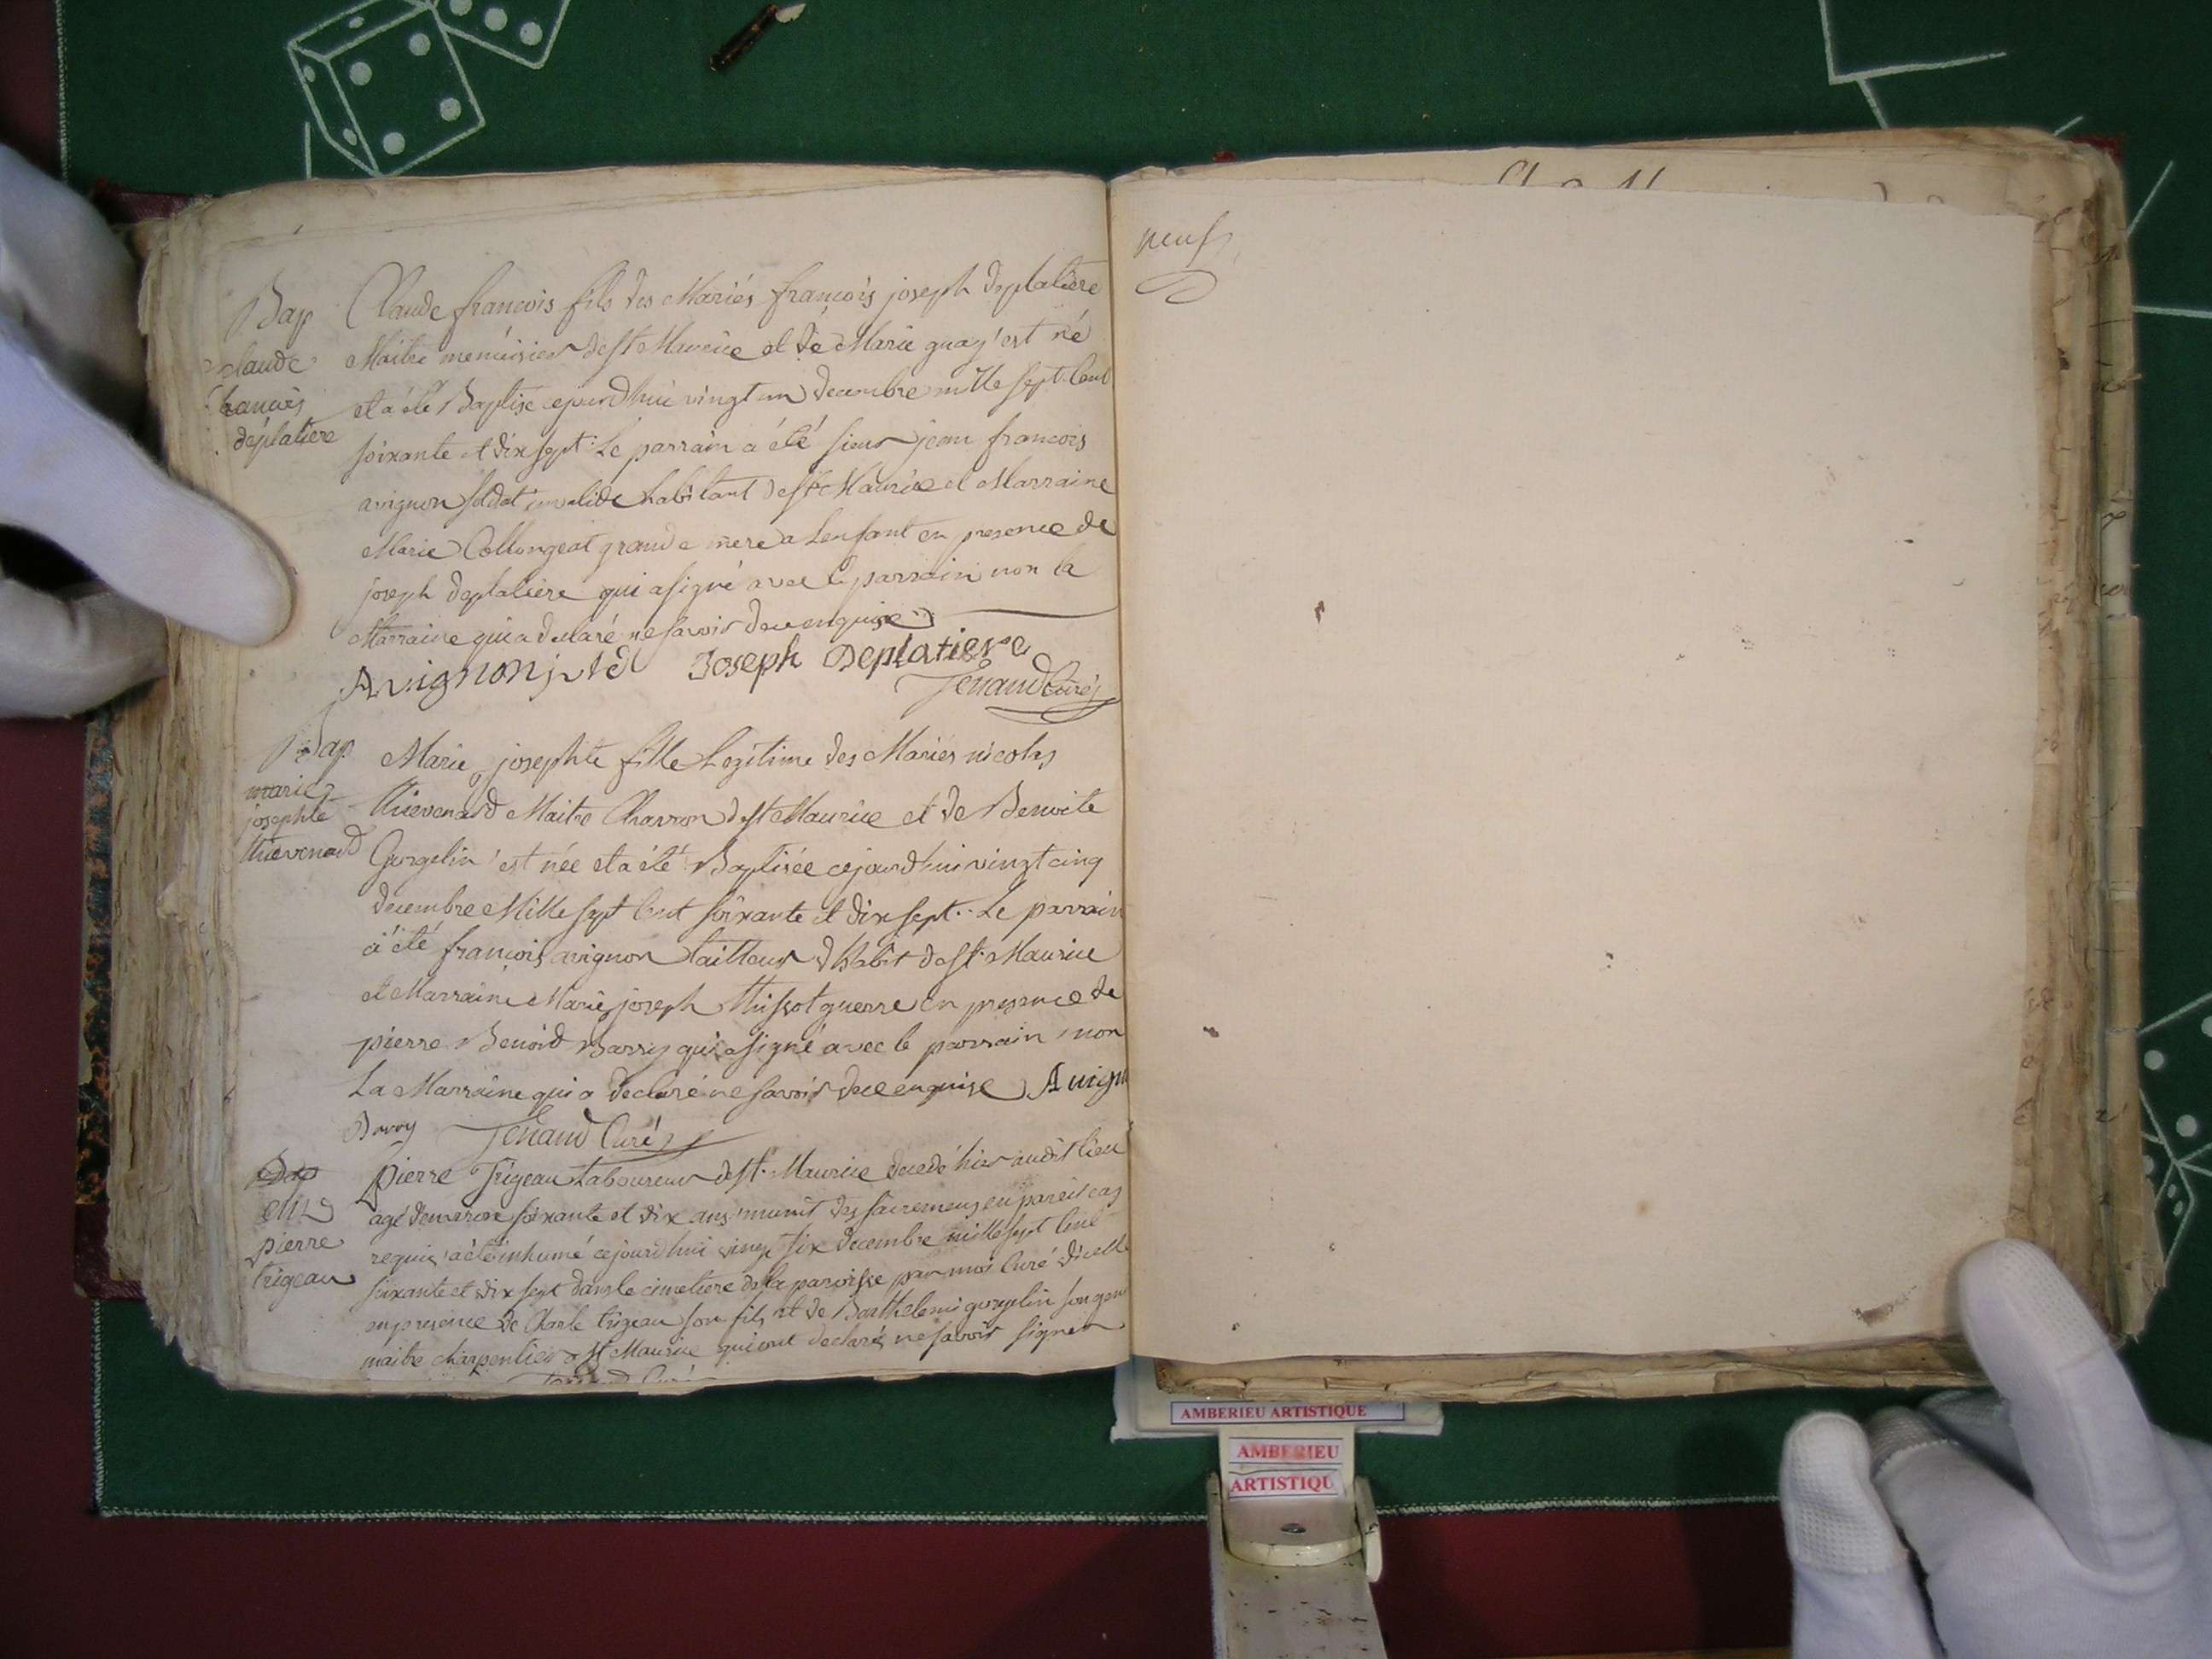 Bap
claude
francois
déplatiere
Claude francois fils des Mariés françois joseph deplatiere
Maitre menuisier de st Maurice et de Marie guay est né
et a été Baptisé cejourdhui vingt un decembre mille sept Cent
soixante et dix sept. Le parrain a été sieur jean francois
avignon soldat invalide habitant de st Maurice et Marraine
Marie Collongeat grande mere a Lenfant en presence de
joseph deplatiere qui a signé avec le parrain non la
Marraine qui a declaré ne savoir de ce enquise
Avignon Joseph Deplatiere
Tenand Curé
Bap
marie
josephte
thievenard
Marie josephte fille Legitime des Mariés nicolas
thievenard Maitre Charron de st Maurice et de Benoite
Gorgelin est née et a été Baptisée cejourdhui vingt cinq
decembre Mille sept Cent soixante et dix sept.. Le parrain
a été francois avignon tailleur d habit de st. Maurice
et Marraine Marie joseph guerre en presence de
pierre Benoid Barry qui a signé avec le parrain non
La Marraine qui a declaré ne savoir de ce enquise Avign
Tenand Curé
Bap
pierre
trigeau
pierre Trigeau Laboureur de st. Maurice decedé hier audit lieu
agé denviron soixante et dix ans munit des sacremens en pareil cas
requis a été inhumé cejourdhui vingt six decembre mille sept Cent
soixante et dix sept dans le cimetiere de la paroisse par moi Curé dicelle
en presence de Charle trigeau son fils et de Barthelemi gorgelin son gen
maitre charpentier a st Maurice qui ont declarés ne savoir signer
Tenand Curé
neuf
AMBERIEU ARTISTIQUE
AMBERIEU
ARTISTIQU